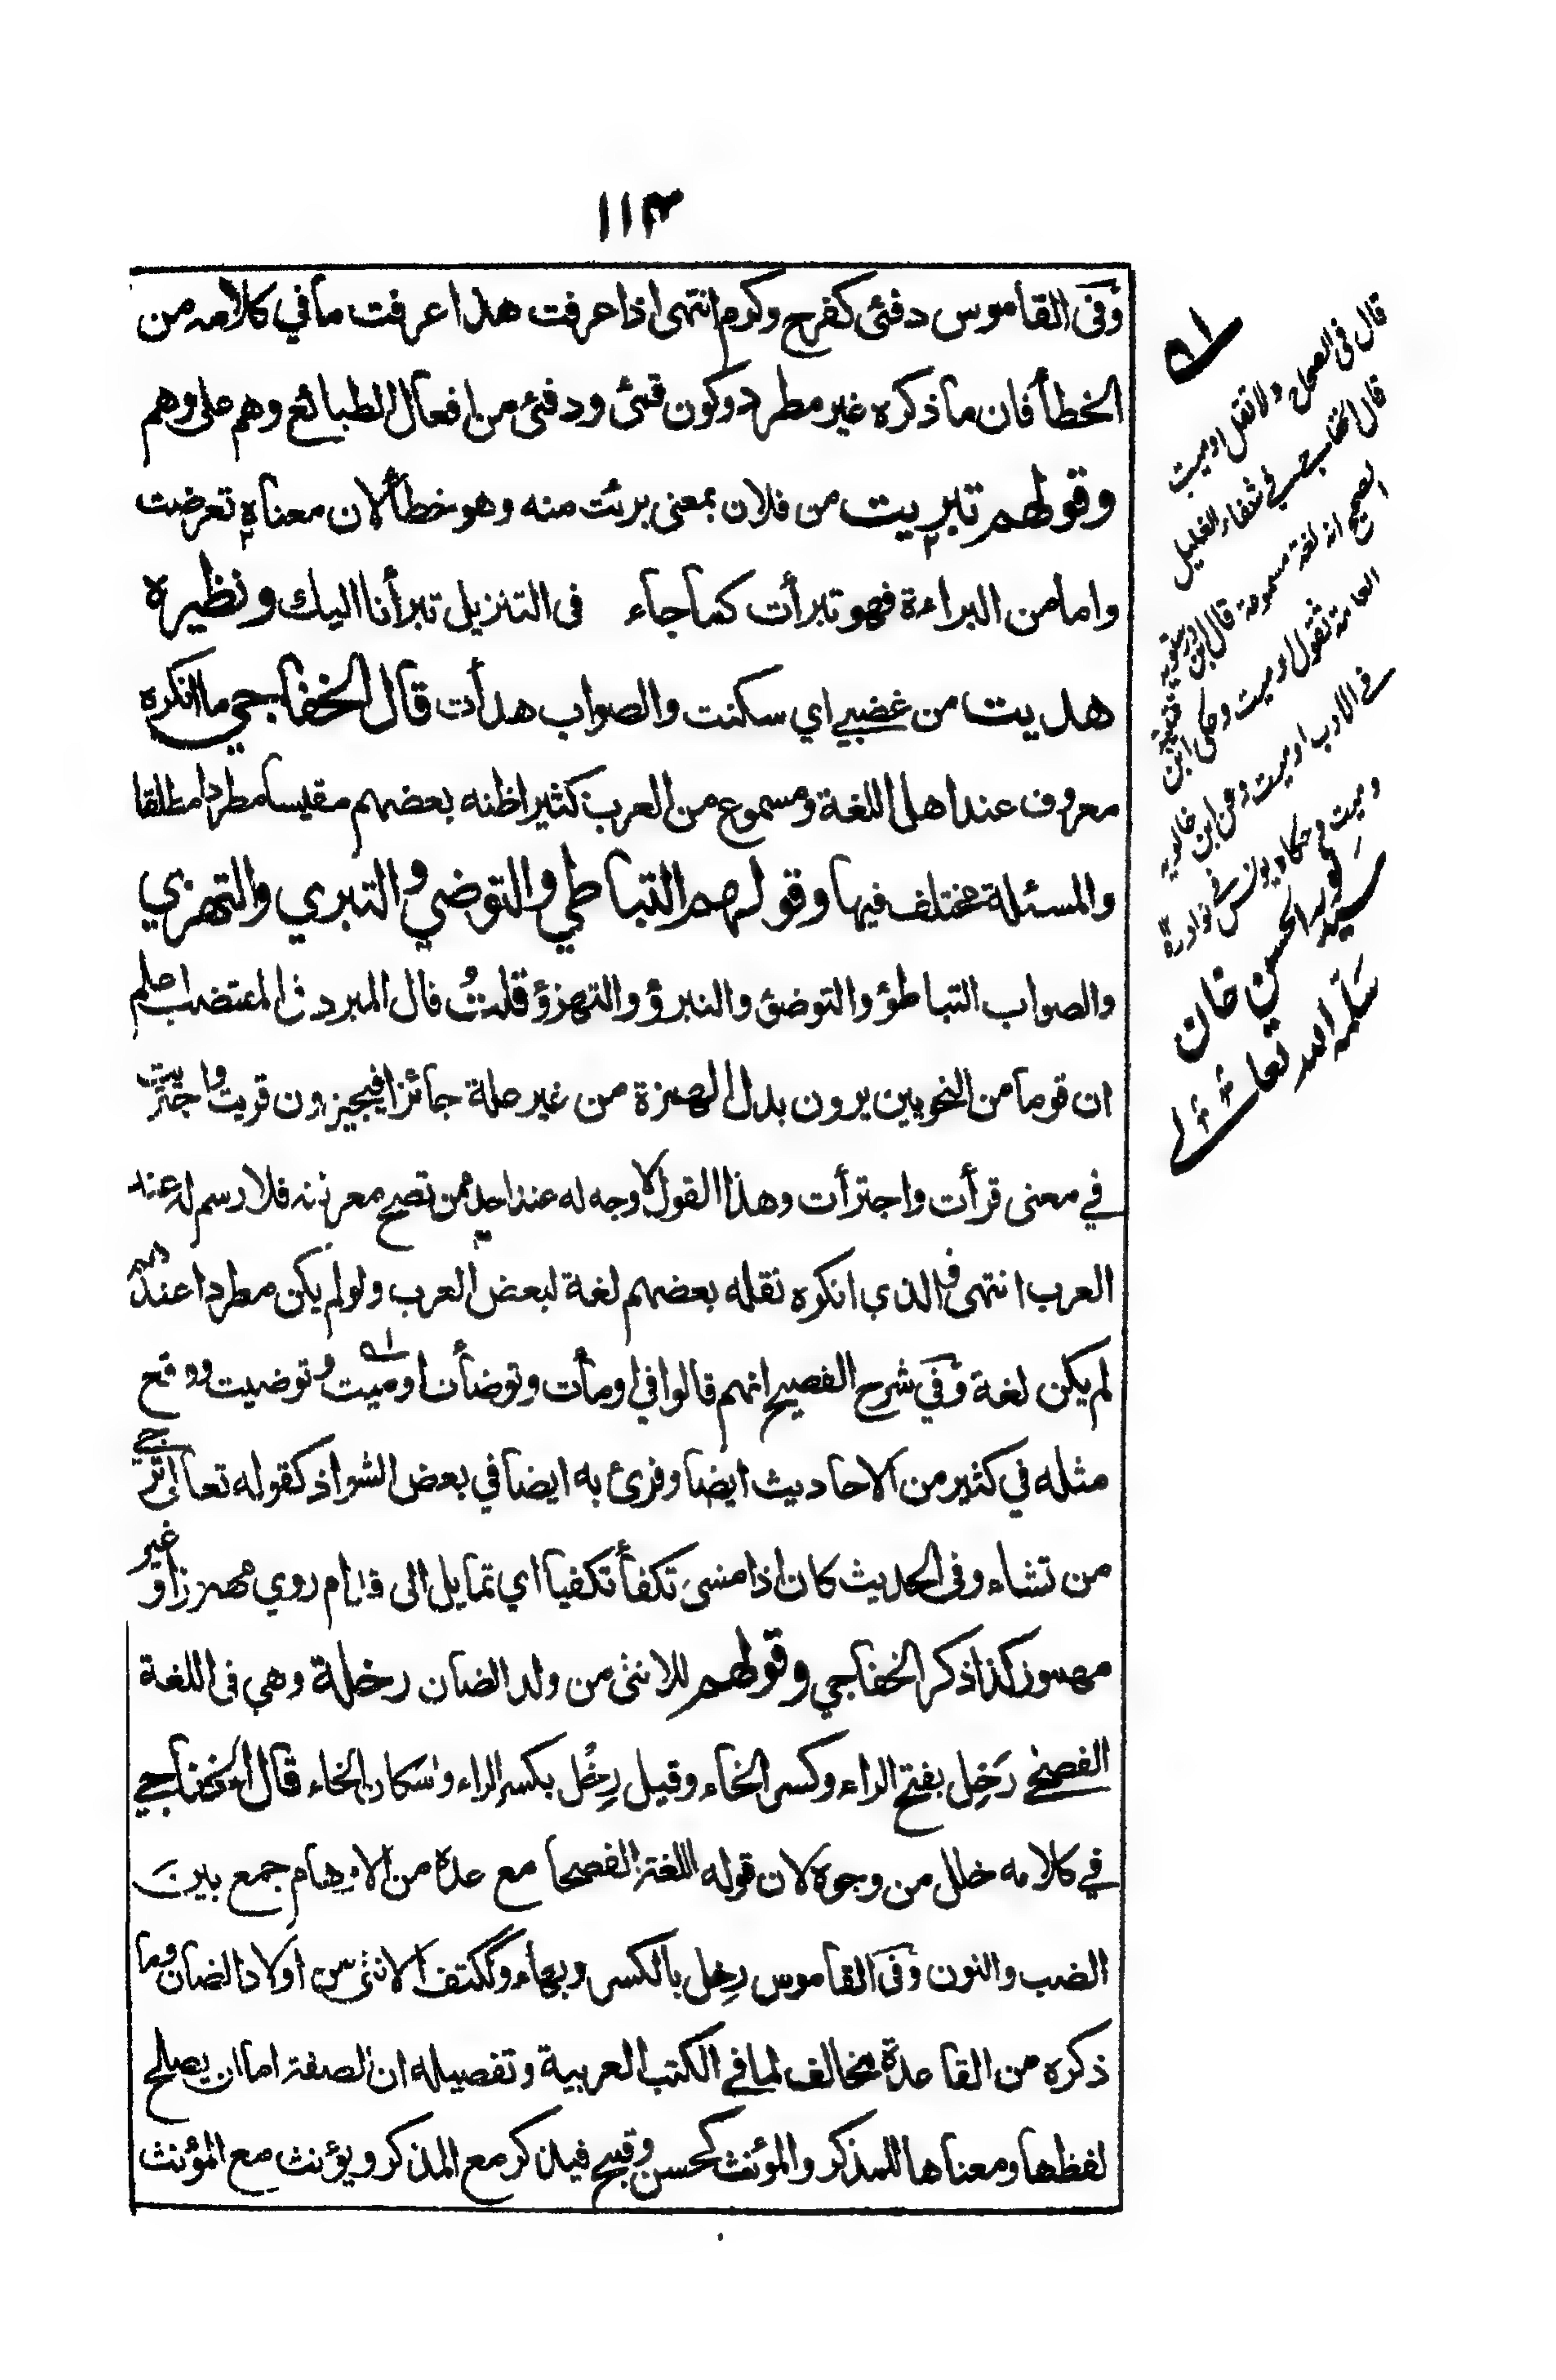 ١١٣
وفى القاموس دفئ كفرح وكرم انتهى اذا عرفت هذا عرفت ما في كلامه من
الخطأ فان ما ذكره غير مطرد وكون قمئ ودفئ من افعال الطبائع وهم على وهم
وقولهم تبريت من فلان بمعنى برئت منه وهو خطألان معناه تعرضت
واما من البراءة فهو تبرأت كما جاء فى التنزيل تبرأنا اليك ونظيره
هديت من غضبي اي سكنت والصواب هدأت قال الخفاجي ما انكره
معروف عند اهل اللغة ومسموع من العرب كثيرا ظنه بعضهم مقيسا مطردا مطلقا
والمسئلة مختلف فيها وقولهم التباطي والتوضي والتبري والتهزي
والصواب التباطؤ والتوضؤ والتبرؤ والتهزؤ قلت قال المبرد في المقتضب اعلم
ان قوما من النحويين يرون بدل الهمزة من غير علة جائزا فيجيزون قريت واجتريت
في معنى قرأت واجترأت وهذا القول لا وجه له عند احد ممن تصح معرفته فلا رسم له عند
العرب انتهى والذي انكره نقله بعضهم لغة لبعض العرب ولو لم يكن مطردا عندهم
لم يكن لغة وفي شرح الفصيح انهم قالوا في اومأت وتوضأت اوميت وتوضيت ووقع
مثله في كثير من الاحاديث ايضا وقرئ به ايضا في بعض الشواذ كقوله تعالى ترجي
من تشاء وفى الحديث كان اذا مشى تكفأ تكفيا اي تمايل الى قدام روي مهموزا وغير
مهموز كذا ذكر الخفاجي وقولهم للانثى من ولد الضان رخلة وهي فى اللغة
الفصحى رَخِل بفتح الراء وكسر الخاء وقيل رِخْل بكسر الراء واسكان الخاء قال الخفاجي
في كلامه خلل من وجوه لان قوله اللغة الفصحا مع عده من الاوهام جمع بين
الضب والنون وفى القاموس رخل بالكسر وبهاء وككتف الانثى من اولاد الضان وما
ذكره من القاعدة مخالف لما في الكتب العربية وتفصيله ان الصفة اما ان يصلح
لفظها ومعناها للمذكر والمؤنث كحسن وقبيح فيذكر مع المذكر ويؤنث مع المؤنث
قال فى الصحاح ولا تقل اوميت
قال الخفاجي في شفاء الغليل
الصحيح انه لغة مسموعة قال ابن درستويه
العامة تقول اوميت وحكى ابن قتيبة
في الادب اوميت وعن ابن خالويه
وميت وحكاه يونس في نوادره
سيد نور الحسن خان
سلمه الله تعالى